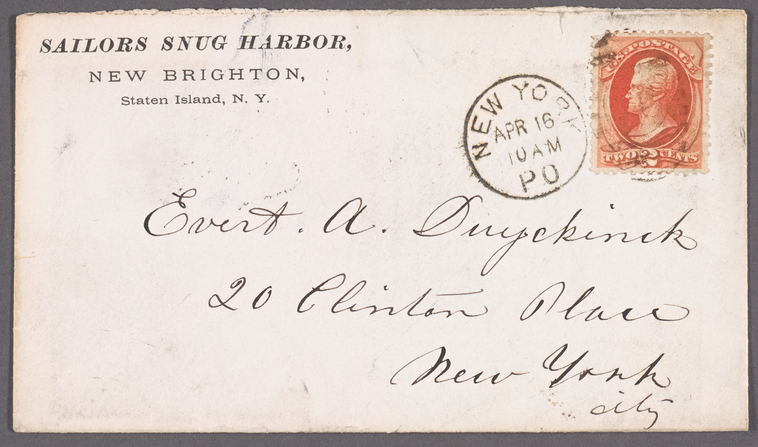 SAILORS SNUG HARBOR,
NEW BRIGHTON,
Staten Island, N. Y.
NEW YORK
APR 16
10 AM
PO
U.S. POSTAGE
TWO 2 CENTS
Evert. A. Duyckinck
20 Clinton Place
New York
city